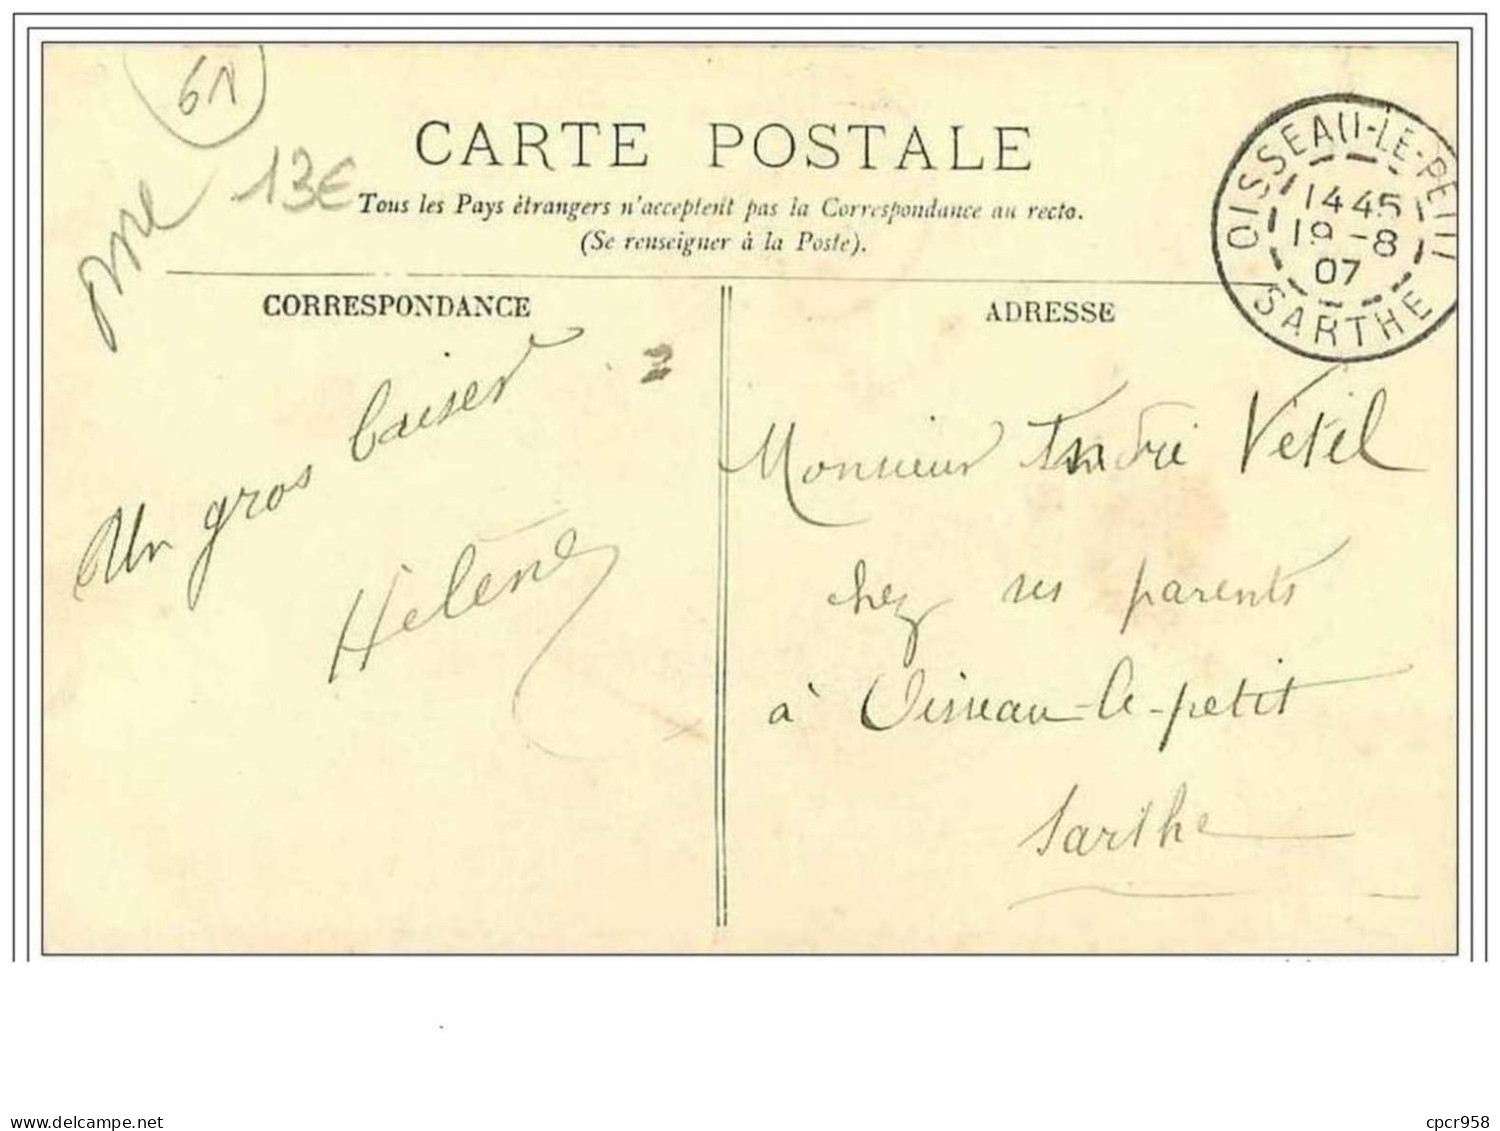 61
13€
CARTE POSTALE
Tous les Pays étrangers n'acceptent pas la Correspondance au recto.
(Se renseigner à la Poste).
OISSEAU-LE-PETIT
1445
19-8
07
SARTHE
CORRESPONDANCE
Un gros baiser
Hélène
ADRESSE
Monsieur André Vétél
chez ses parents
à Oisseau-le-petit
Sarthe
delcampe.net
cpcr958